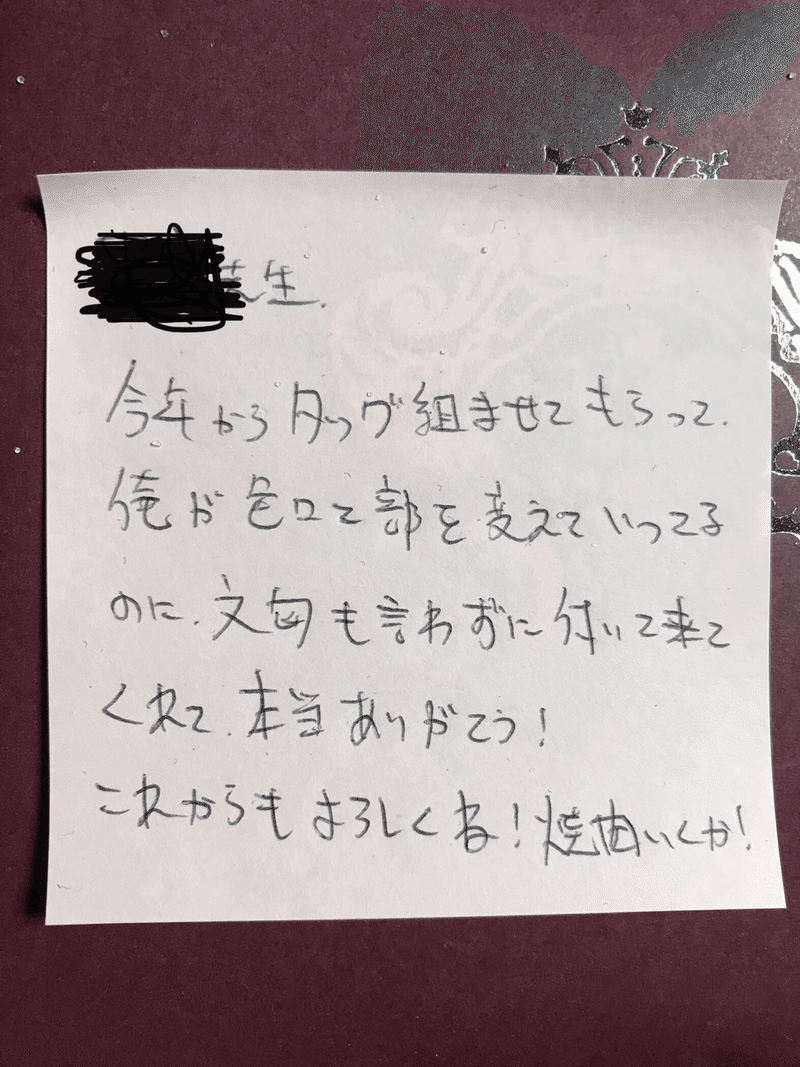 先生.
今年からタッグ組ませてもらって.
俺が色々と部を変えていってる
のに.文句も言わずに付いて来て
くれて.本当ありがとう!
これからもよろしくね!焼肉いくか!